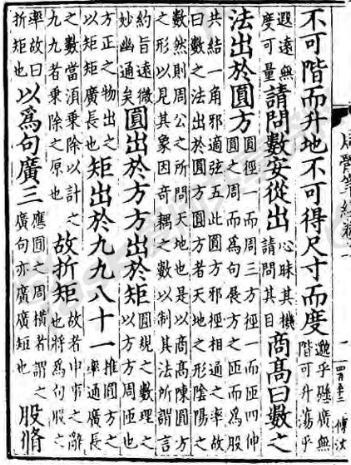 不可階而升地不可得尺寸而度邈乎懸廣無階可升蕩乎
遐遠無度可量請問數安從出心昧其機請問其目商高曰數之
法出於圓方圓徑一而周三方徑一而匝四伸圓之周而為句展方之匝而為股
共結一角邪適弦五此圓方邪徑相通之率故曰數之法出於圓方圓方者天地之形陰陽之
數然則周公之所問天地也是以商高陳圓方之形以見其象因奇耦之數以制其法所謂言
約旨遠微妙幽通矣圓出於方方出於矩圓規之數理之以方方周匝也
方正之物出之以矩矩廣長也矩出於九九八十一推圓方之率通廣長
之數當須乘除以計之九九者乘除之原也故折矩故者申事之辭也將為句股之
率故曰折矩也以爲句廣三應圓之周橫者謂之廣句亦廣廣短也股脩